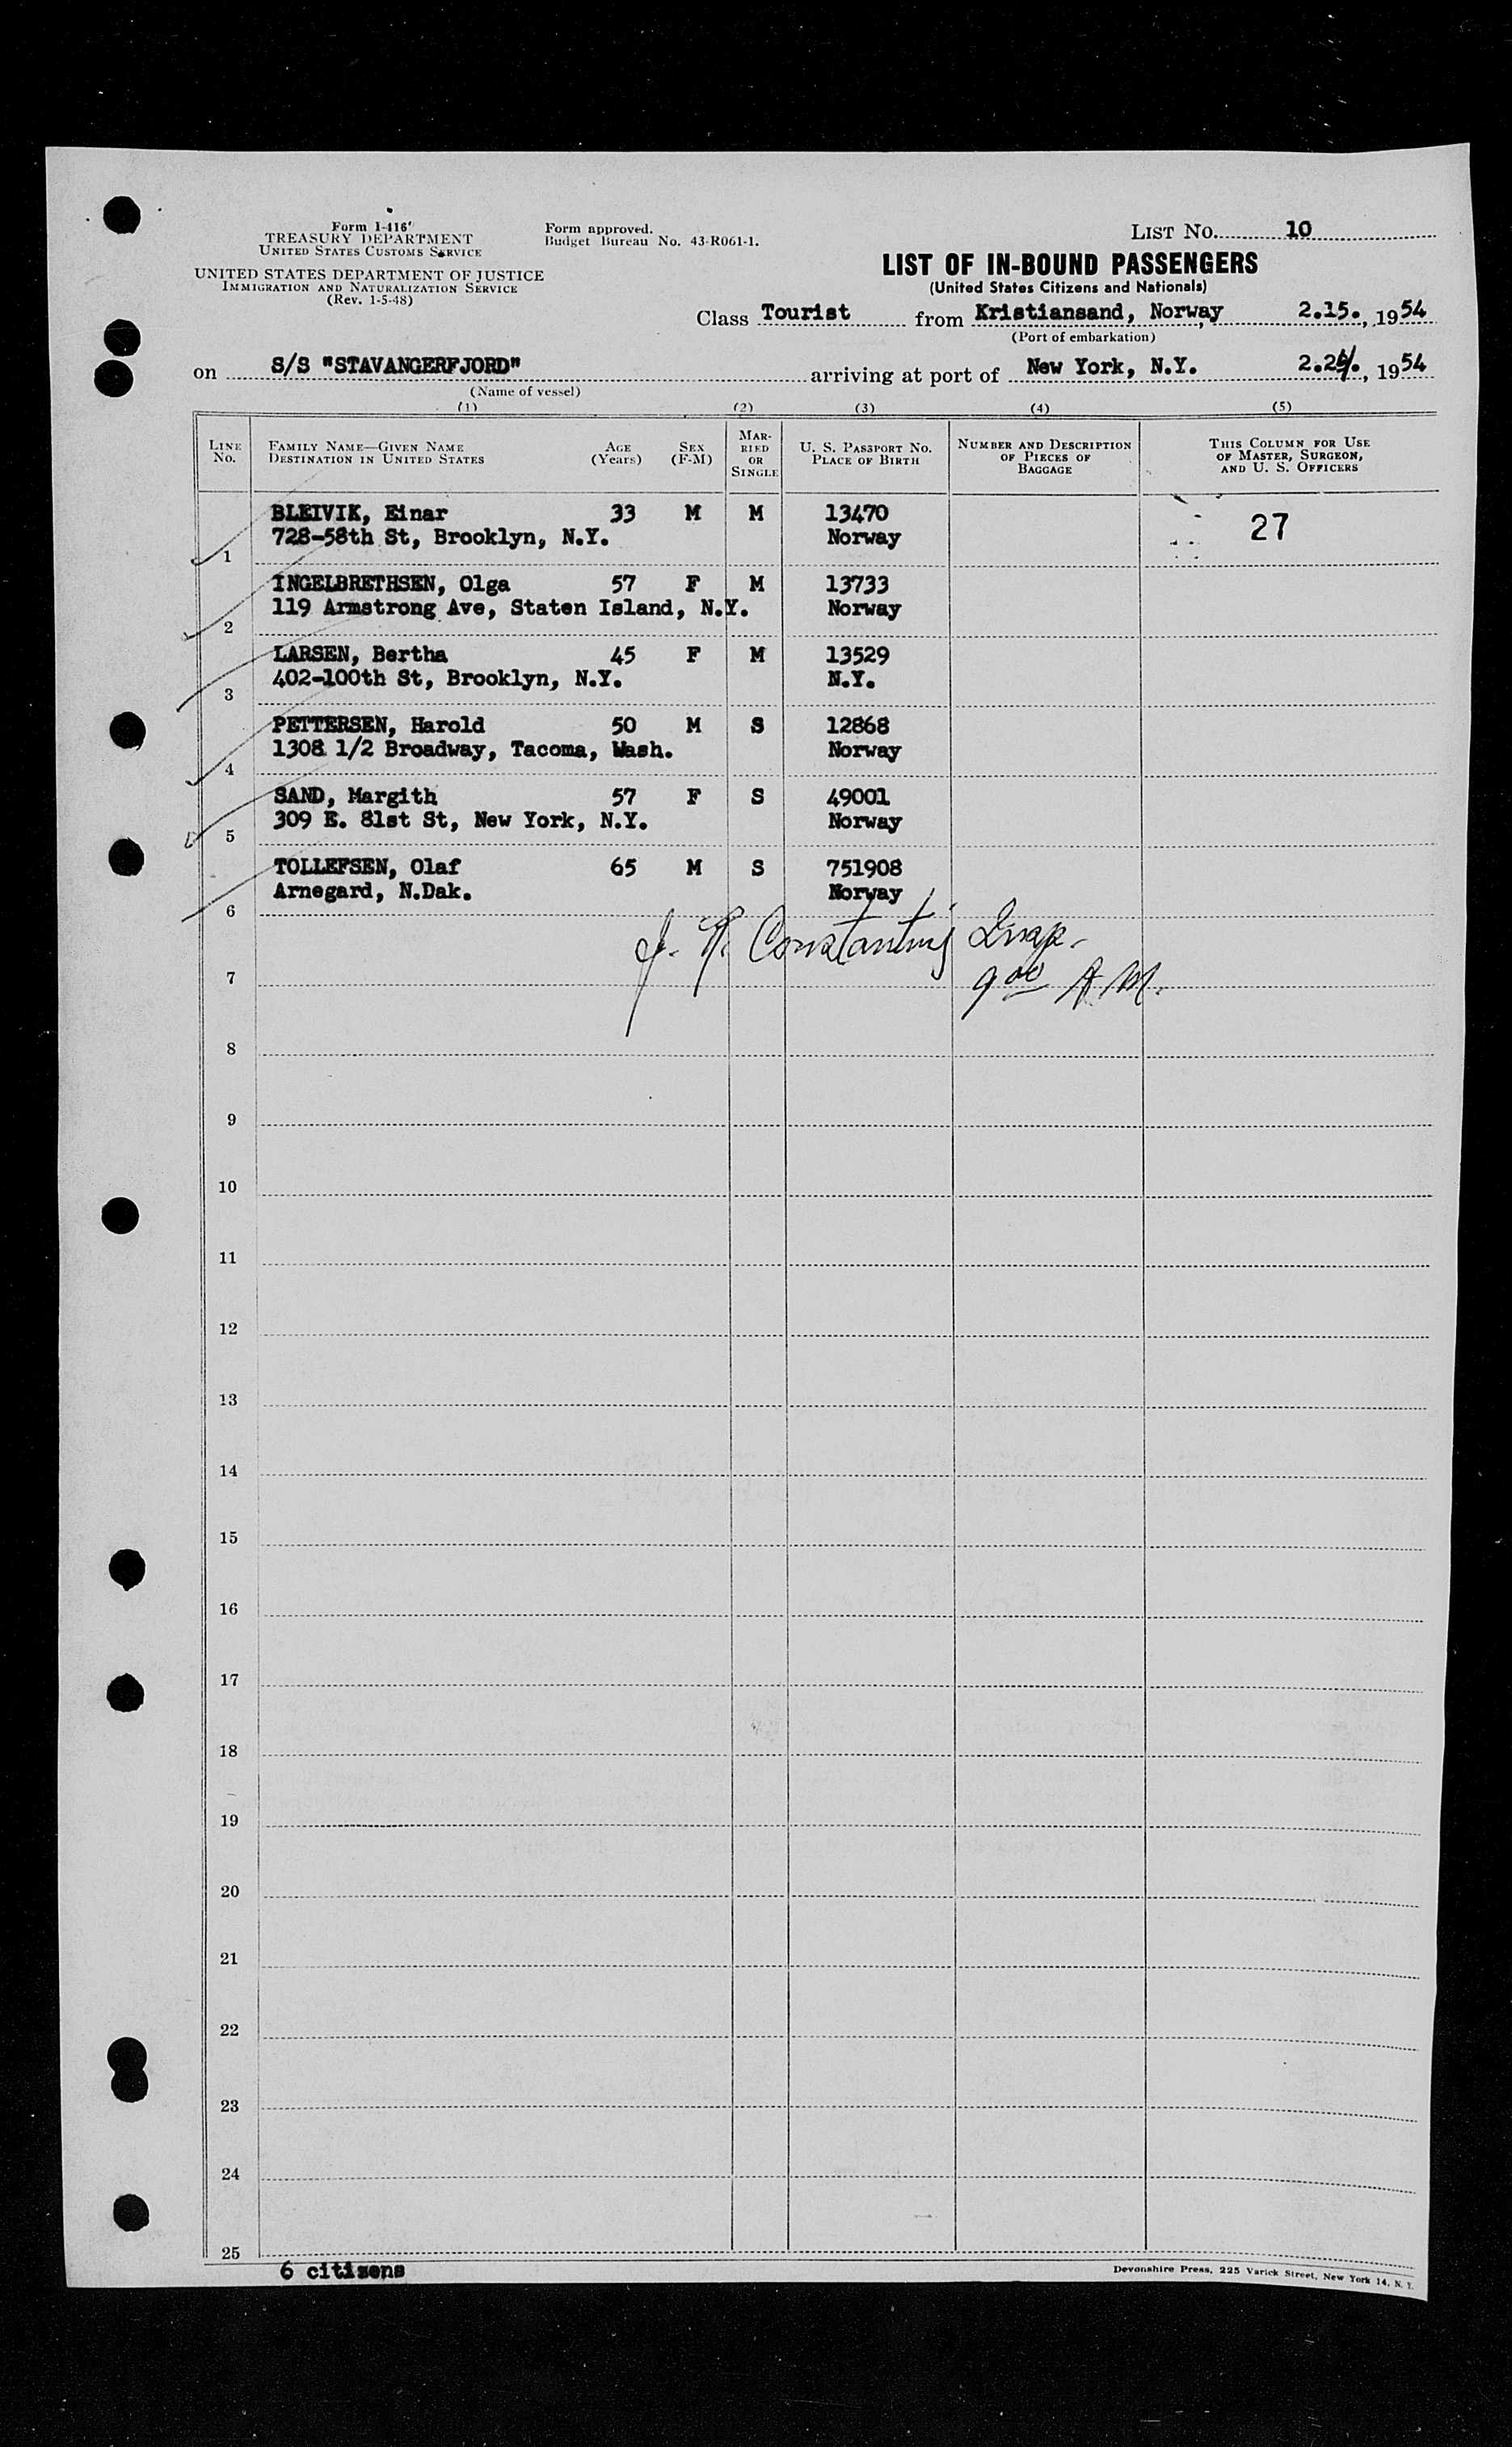 Form I-416
TREASURY DEPARTMENT
UNITED STATES CUSTOMS SERVICE
UNITED STATES DEPARTMENT OF JUSTICE
IMMIGRATION AND NATURALIZATION SERVICE
(Rev. 1-5-48)
Form approved.
Budget Bureau No. 43-R061-1.
LIST No. 10
LIST OF IN-BOUND PASSENGERS
(United States Citizens and Nationals)
Class Tourist from Kristiansand, Norway 2.15., 1954
(Port of embarkation)
on S/S "STAVANGERFJORD" arriving at port of New York, N.Y. 2.24., 1954
(Name of vessel)
(1) (2) (3) (4) (5)
LINE No. FAMILY NAME—GIVEN NAME DESTINATION IN UNITED STATES AGE (Years) SEX (F-M) MARRIED OR SINGLE U. S. PASSPORT No. PLACE OF BIRTH NUMBER AND DESCRIPTION OF PIECES OF BAGGAGE THIS COLUMN FOR USE OF MASTER, SURGEON, AND U. S. OFFICERS
BLEIVIK, Einar 33 M M 13470 27
728-58th St, Brooklyn, N.Y. Norway
1
INGELBRETHSEN, Olga 57 F M 13733
119 Armstrong Ave, Staten Island, N.Y. Norway
2
LARSEN, Bertha 45 F M 13529
402-100th St, Brooklyn, N.Y. N.Y.
3
PETTERSEN, Harold 50 M S 12868
1308 1/2 Broadway, Tacoma, Wash. Norway
4
SAND, Margith 57 F S 49001
309 E. 81st St, New York, N.Y. Norway
5
TOLLEFSEN, Olaf 65 M S 751908
Arnegard, N.Dak. Norway
6
Insp.
7
9 00 A.M.
8
9
10
11
12
13
14
15
16
17
18
19
20
21
22
23
24
25
6 citizens
Devonshire Press, 225 Varick Street, New York 14, N. Y.